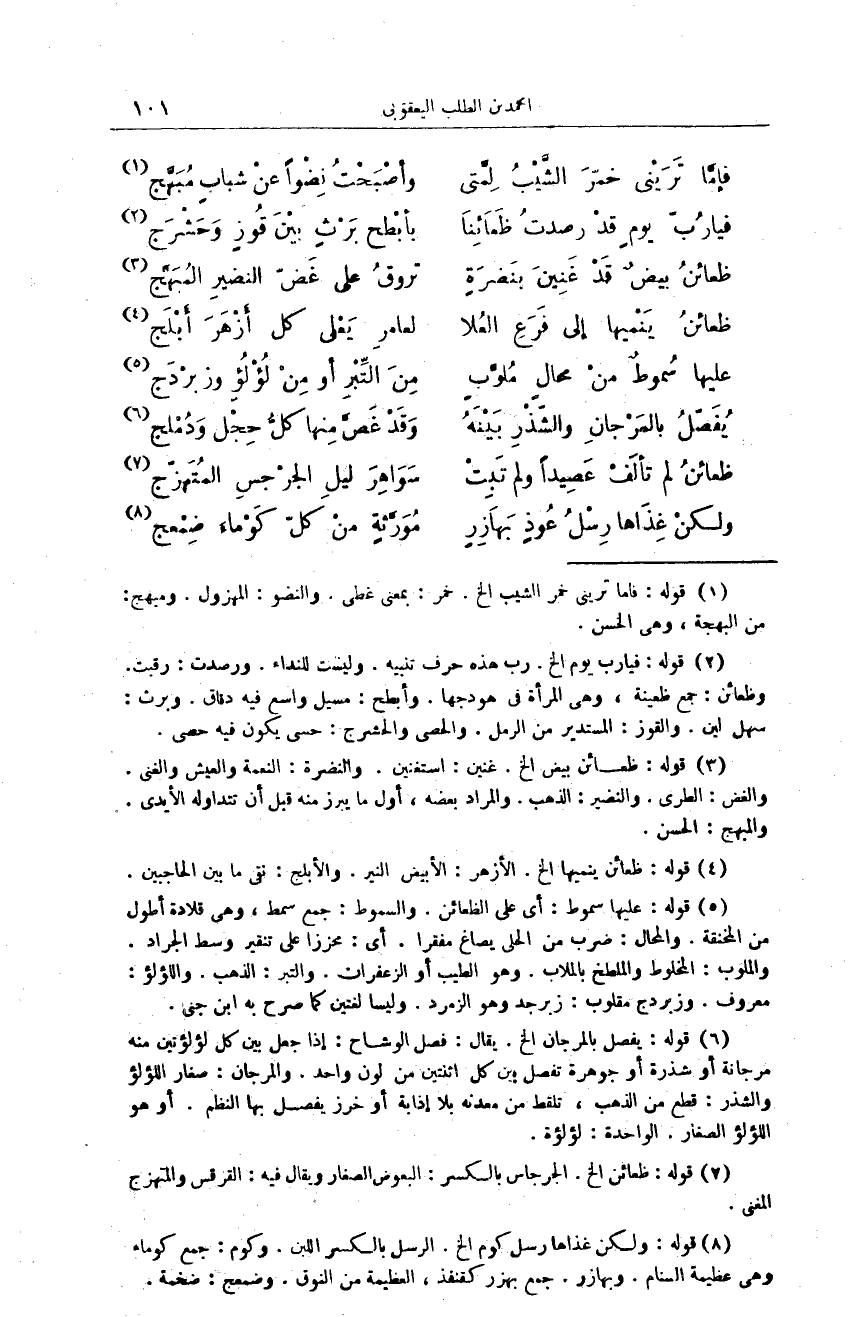 امحمد بن الطلب اليعقوبى ١٠١
فإمَّا تَرَيْنى خمَّرَ الشَّيْبُ لِمَّتى وأصْبَحْتُ نِضْواً عنْ شبابٍ مُبَهَّجِ (١)
فيارُبَّ يومٍ قدْ رصدتُ ظَعَائِنَا بأبْطحِ بَرْثٍ بيْنَ قَوْزٍ وَحَشْرَجِ (٢)
ظعائنُ بيضٌ قَدْ غَنِينَ بِنَضرَةٍ تروقُ على غَضّ النضيرِ المُبَهَّجِ (٣)
ظعائنُ يَنْميها إلى فَرَعِ العُلا لعامرِ يَعْلى كل أزْهَرَ أبْلَجِ (٤)
عليها سُموطٌ منْ محالٍ مُلوَّبٍ مِنَ التِّبْرِ أو مِنْ لُؤْلُؤٍ وزبرْدَجِ (٥)
يُفَصّلُ بالمَرْجانِ والشَّذْرِ بَيْنَهُ وَقَدْ غَصَّ منها كلُّ حِجْلٍ وَدُمْلجِ (٦)
ظعائنُ لم تألَفْ عَصِيداً ولم تَبِتْ سَوَاهِرَ ليلِ الجرْجسِ المُتَهزّجِ (٧)
ولكنْ غِذَاها رِسْلُ عُوذٍ بَهَازِرٍ مُوَرَّثةٍ منْ كلّ كَوْماءَ ضِمْعجِ (٨)
(١) قوله : فاما ترينى خمر الشيب الخ . خمر : بمعنى غطى . والنضو : المهزول . ومبهج :
من البهجة ، وهى الحسن .
(٢) قوله : فيارب يوم الخ . رب هذه حرف تنبيه . وليست للنداء . ورصدت : رقبت.
وظعائن : جمع ظعينة ، وهى المرأة فى هودجها . وأبطح : مسيل واسع فيه دقاق . وبرث :
سهل لين . والقوز : المستدير من الرمل . والحصى والحشرج : حسى يكون فيه حصى .
(٣) قوله : ظعـــائن بيض الخ . غنين : استغنين . والنضرة : النعمة والعيش والغنى .
والغض : الطرى . والنضير : الذهب . والمراد بعضه ، أول ما يبرز منه قبل أن تتداوله الأيدى .
والمبهج : الحسن .
(٤) قوله : ظعائن ينميها الخ . الأزهر : الأبيض النير . والأبلج : نقى ما بين الحاجبين .
(٥) قوله : عليها سموط : أى على الظعائن . والسموط : جمع سمط ، وهى قلادة أطول
من المخنقة . والمحال : ضرب من الحلى يصاغ مفقرا . أى : محززا على تنقير وسط الجراد .
والملوب : المخلوط والملطخ بالملاب . وهو الطيب أو الزعفرات . والتبر : الذهب . واللؤلؤ :
معروف . وزبردج مقلوب : زبرجد وهو الزمرد . وليسا لغتين كما صرح به ابن جنى .
(٦) قوله : يفصل بالمرجان الخ . يقال : فصل الوشـــاح : إذا جعل بين كل لؤلؤتين منه
مرجانة أو شذرة أو جوهرة تفصل بين كل اثنتين من لون واحد . والمرجان : صغار اللؤلؤ
والشذر : قطع من الذهب ، تلقط من معدنه بلا إذابة أو خرز يفصـــل بها النظم . أو هو
اللؤلؤ الصغار . الواحدة : لؤلؤة .
(٧) قوله : ظعائن الخ . الجرجاس بالكسر : البعوض الصغار ويقال فيه : القرقس والمتهزج
المغنى .
(٨) قوله : ولكن غذاها رسل كوم الخ . الرسل بالكسر اللبن . وكوم : جمع كوماء
وهى عظيمة السنام . وبهازر . جمع بهزر كقنفذ ، العظيمة من النوق . وضمعج : ضخمة .